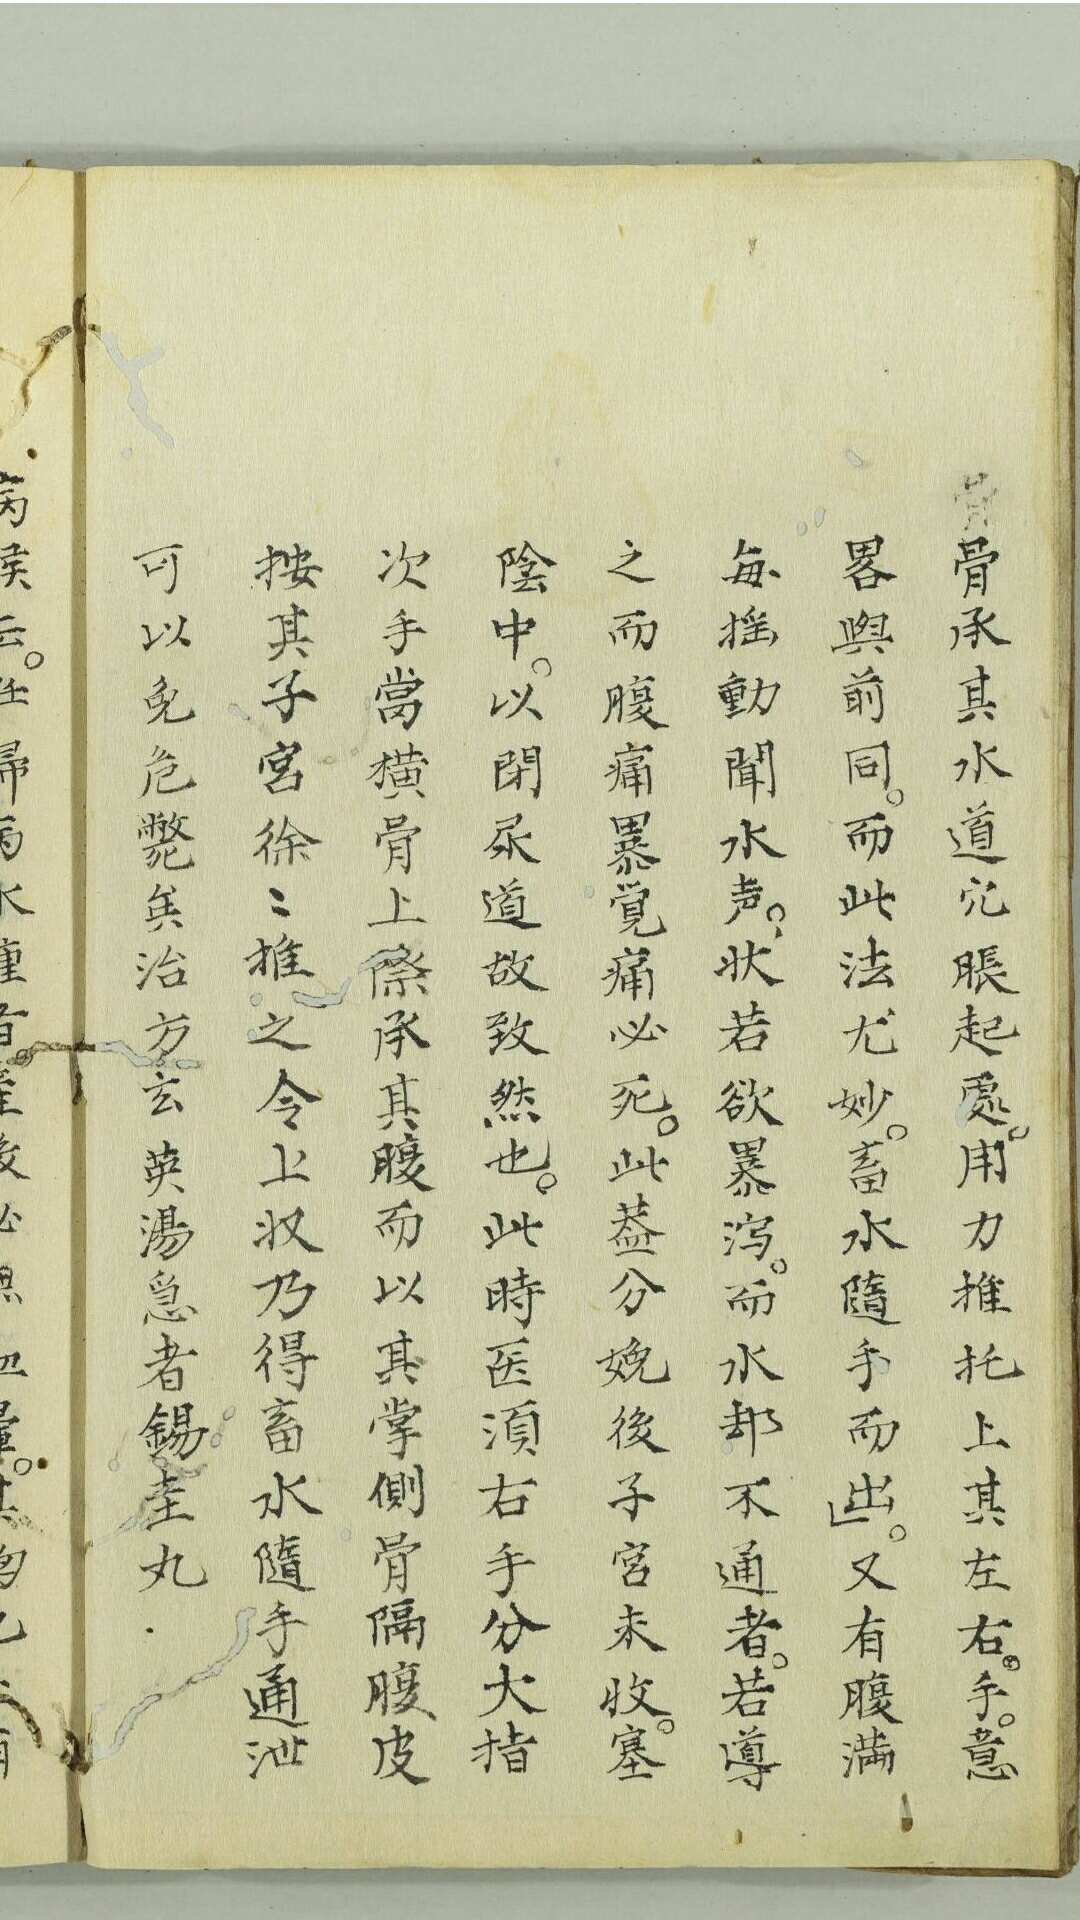 骨骨承其水道它脹起處。用力推托上其左右。手。意
畧與前同。而此法尤妙。畜水隨手而出」。又有腹満
每揺動聞水声。状若欲暴泻。而水却不通者。若導
之而腹痛暴覚痛必死。此葢分娩後子宮未收。塞
陰中。以閉尿道故致然也。此時医須右手分大指
次手當横骨上際承其腹而以其掌側骨隔腹皮
按其子宮徐〻推之令上收乃得畜水隨手通泄
可以免危斃矣治方玄英湯急者錫圭丸
病候云。妊婦病水腫者産後必患血暈。其